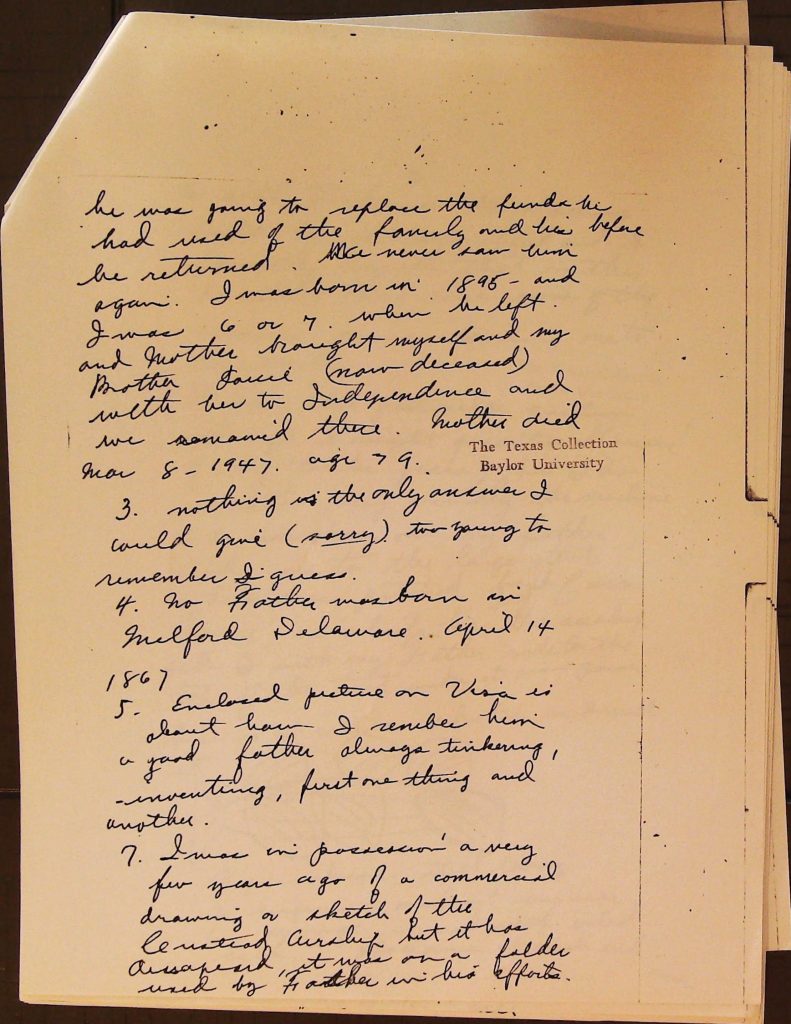 he was going to replace the funds he
had used of the family and his before
he returned. We never saw him
again. I was born in 1895 - and
I was 6 or 7 when he left.
and Mother brought myself and my
Brother (now deceased)
with her to Independence and
we remained there. Mother died
Mar 8 - 1947. age 79.
The Texas Collection
Baylor University
3. nothing is the only answer I
could give (sorry) too young to
remember I guess.
4. No Father was born in
Milford Delaware.. April 14
1867
5. Enclosed picture on Visa is
about how I rember him
a good father always tinkering,
-inventing, first one thing and
another.
7. I was in possession a very
few years ago of a commercial
drawing or sketch of the
Airship but it has
dissapeard, it was on a folder
used by Father in his efforts.